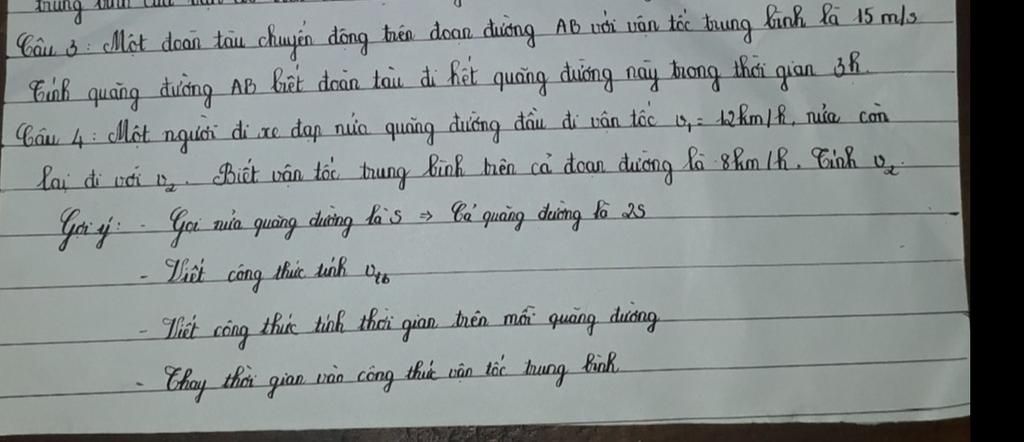 trung bình của
Câu 3: Một đoàn tàu chuyển động trên đoạn đường AB với vận tốc trung bình là 15 m/s
Tính quãng đường AB biết đoàn tàu đi hết quãng đường này trong thời gian 3h.
Câu 4: Một người đi xe đạp nửa quãng đường đầu đi vân tốc v₁= 12km/h, nửa còn
lại đi với v₂. Biết vận tốc trung bình trên cả đoạn đường là 8km/h. Tính v₂.
Gợi ý: - Gọi nửa quãng đường là s ⇒ Cả quãng đường là 2s
- Viết công thức tính vtb
- Viết công thức tính thời gian trên mỗi quãng đường
- Thay thời gian vào công thức vận tốc trung bình